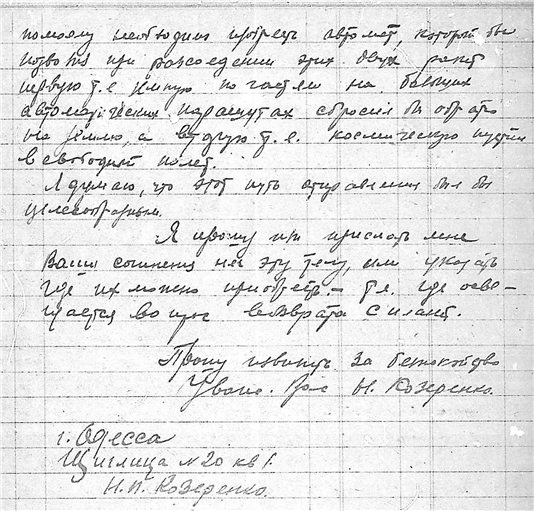 помоему необходимо изобресть автомат, который бы
позволил при разсоединении этих двух ракет
первую т.е земную по частям на больших
автоматических парашутах сбросил бы обратно
на землю, а вторую т.е. космическую пустил
в свободный полет.
Я думаю, что этот путь отправления был бы
целесообразным.
Я прошу прислать мне
Ваши сочинения на эту тему, или указать
где их можно приобресть. – т.е. где осве-
щается вопрос возврата с планет.
Прошу извинить за беспокойство
Уваж. Вас Н. Козеренко.
г. Одесса
N 20 кв 1.
Н.П. Козеренко.